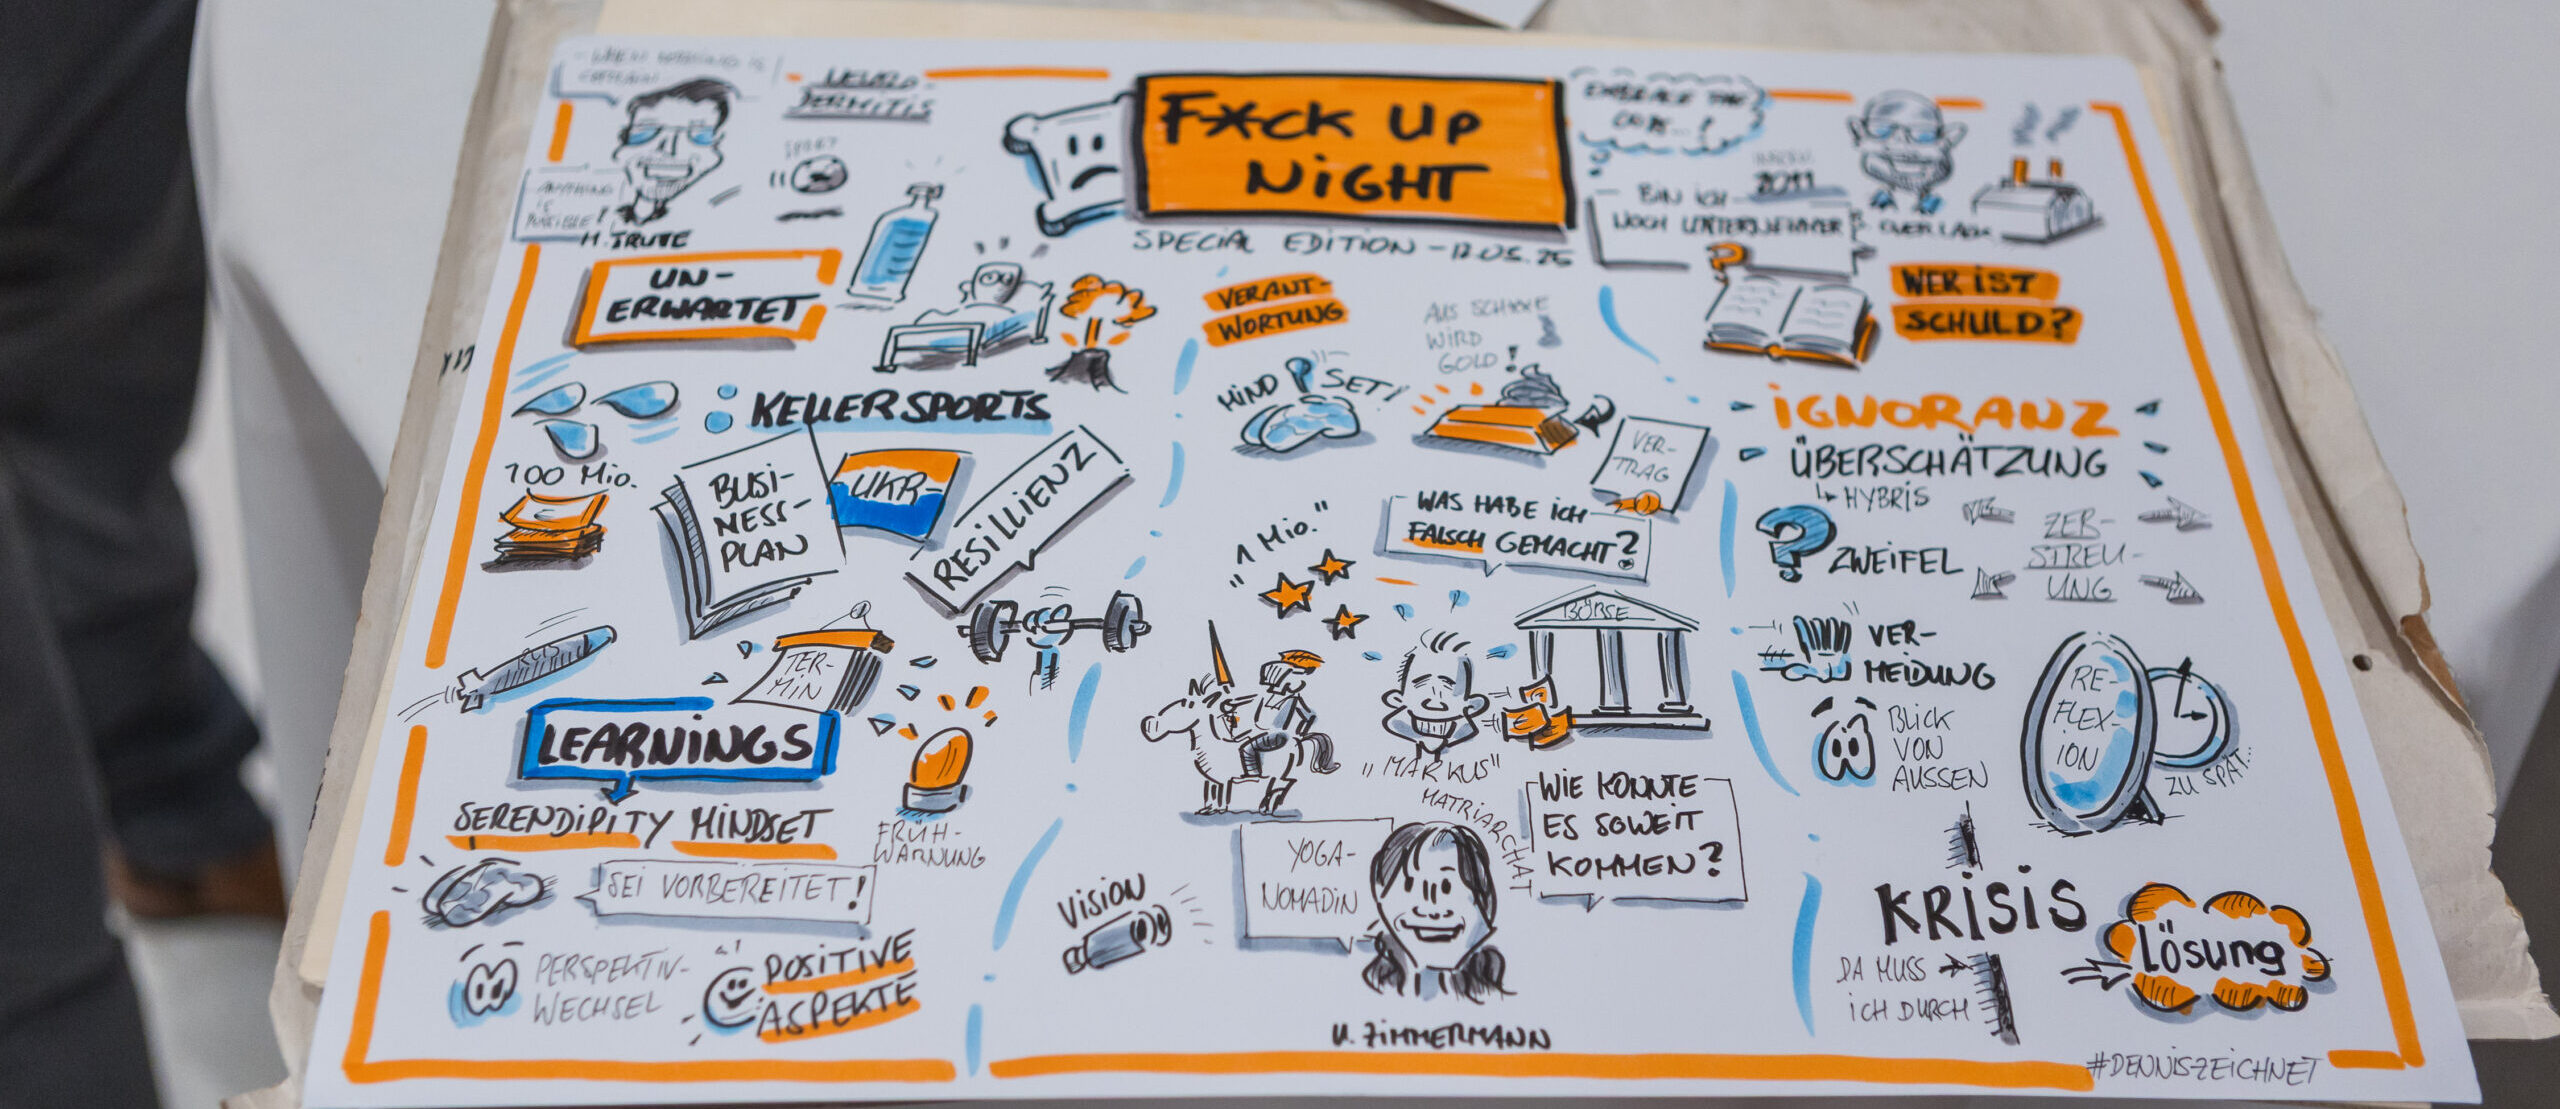 F*CK UP
NIGHT
SPECIAL EDITION - 12.05.25
NEURO-
DERMITIS
SPORT
ANYTHING
IS
POSSIBLE!
M. TRUTE
UN-
ERWARTET
KELLERSPORTS
100 Mio.
BUSI-
NESS-
PLAN
UKR-
RUS
RESILLIENZ
TER-
MIN
LEARNINGS
SERENDIPITY MINDSET
FRÜH-
WARNUNG
SEI VORBEREITET!
PERSPEKTIV-
WECHSEL
POSITIVE
ASPEKTE
VERANT-
WORTUNG
AUS SCH
WIRD
GOLD!
MINDSET!
VER-
TRAG
WAS HABE ICH
FALSCH GEMACHT?
"1 Mio."
BÖRSE
"MARKUS"
MATRIARCHAT
WIE KONNTE
ES SOWEIT
KOMMEN?
YOGA-
NOMADIN
VISION
U. ZIMMERMANN
EMBRACE THE
2011
BIN ICH
NOCH UNTERNEHMER
WER IST
SCHULD?
IGNORANZ
ÜBERSCHÄTZUNG
↳ HYBRIS
ZWEIFEL
ZER-
STREU-
UNG
VER-
MEIDUNG
BLICK
VON
AUSSEN
RE-
FLEX-
ION
ZU SPÄT...
KRISIS
DA MUSS
ICH DURCH
Lösung
#DENNISZEICHNET